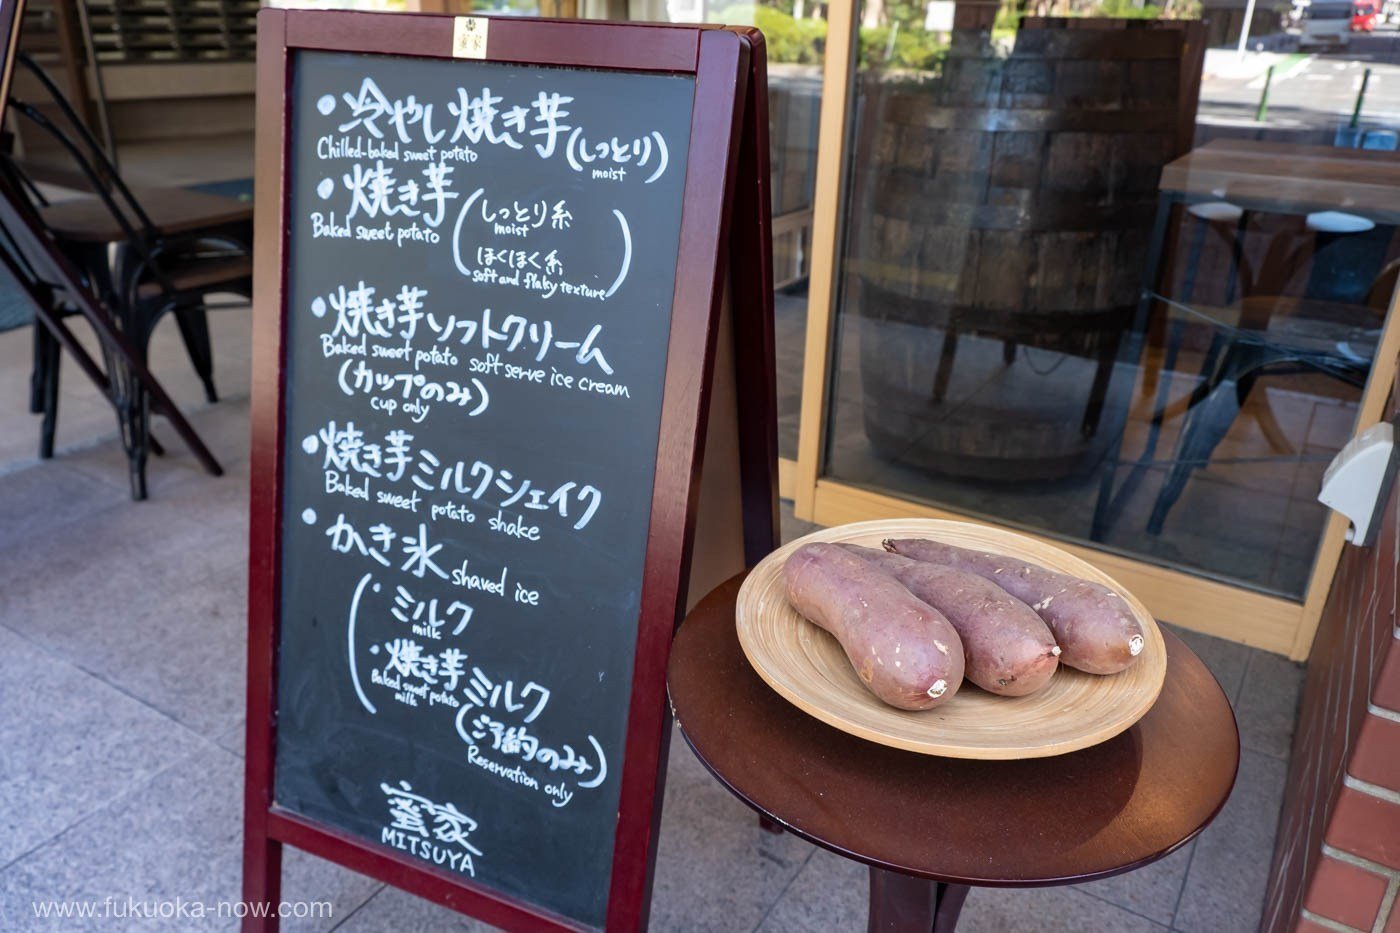 蜜家
・冷やし焼き芋(しっとり)
Chilled-baked sweet potato
moist
・焼き芋
Baked sweet potato
(しっとり系
moist
ほくほく系)
soft and flaky texture
・焼き芋ソフトクリーム
Baked sweet potato soft serve ice cream
(カップのみ)
cup only
・焼き芋ミルクシェイク
Baked sweet potato shake
・かき氷 shaved ice
(・ミルク
milk
・焼き芋ミルク
Baked sweet potato
milk
(ご予約のみ)
Reservation only
蜜家
MITSUYA
www.fukuoka-now.com